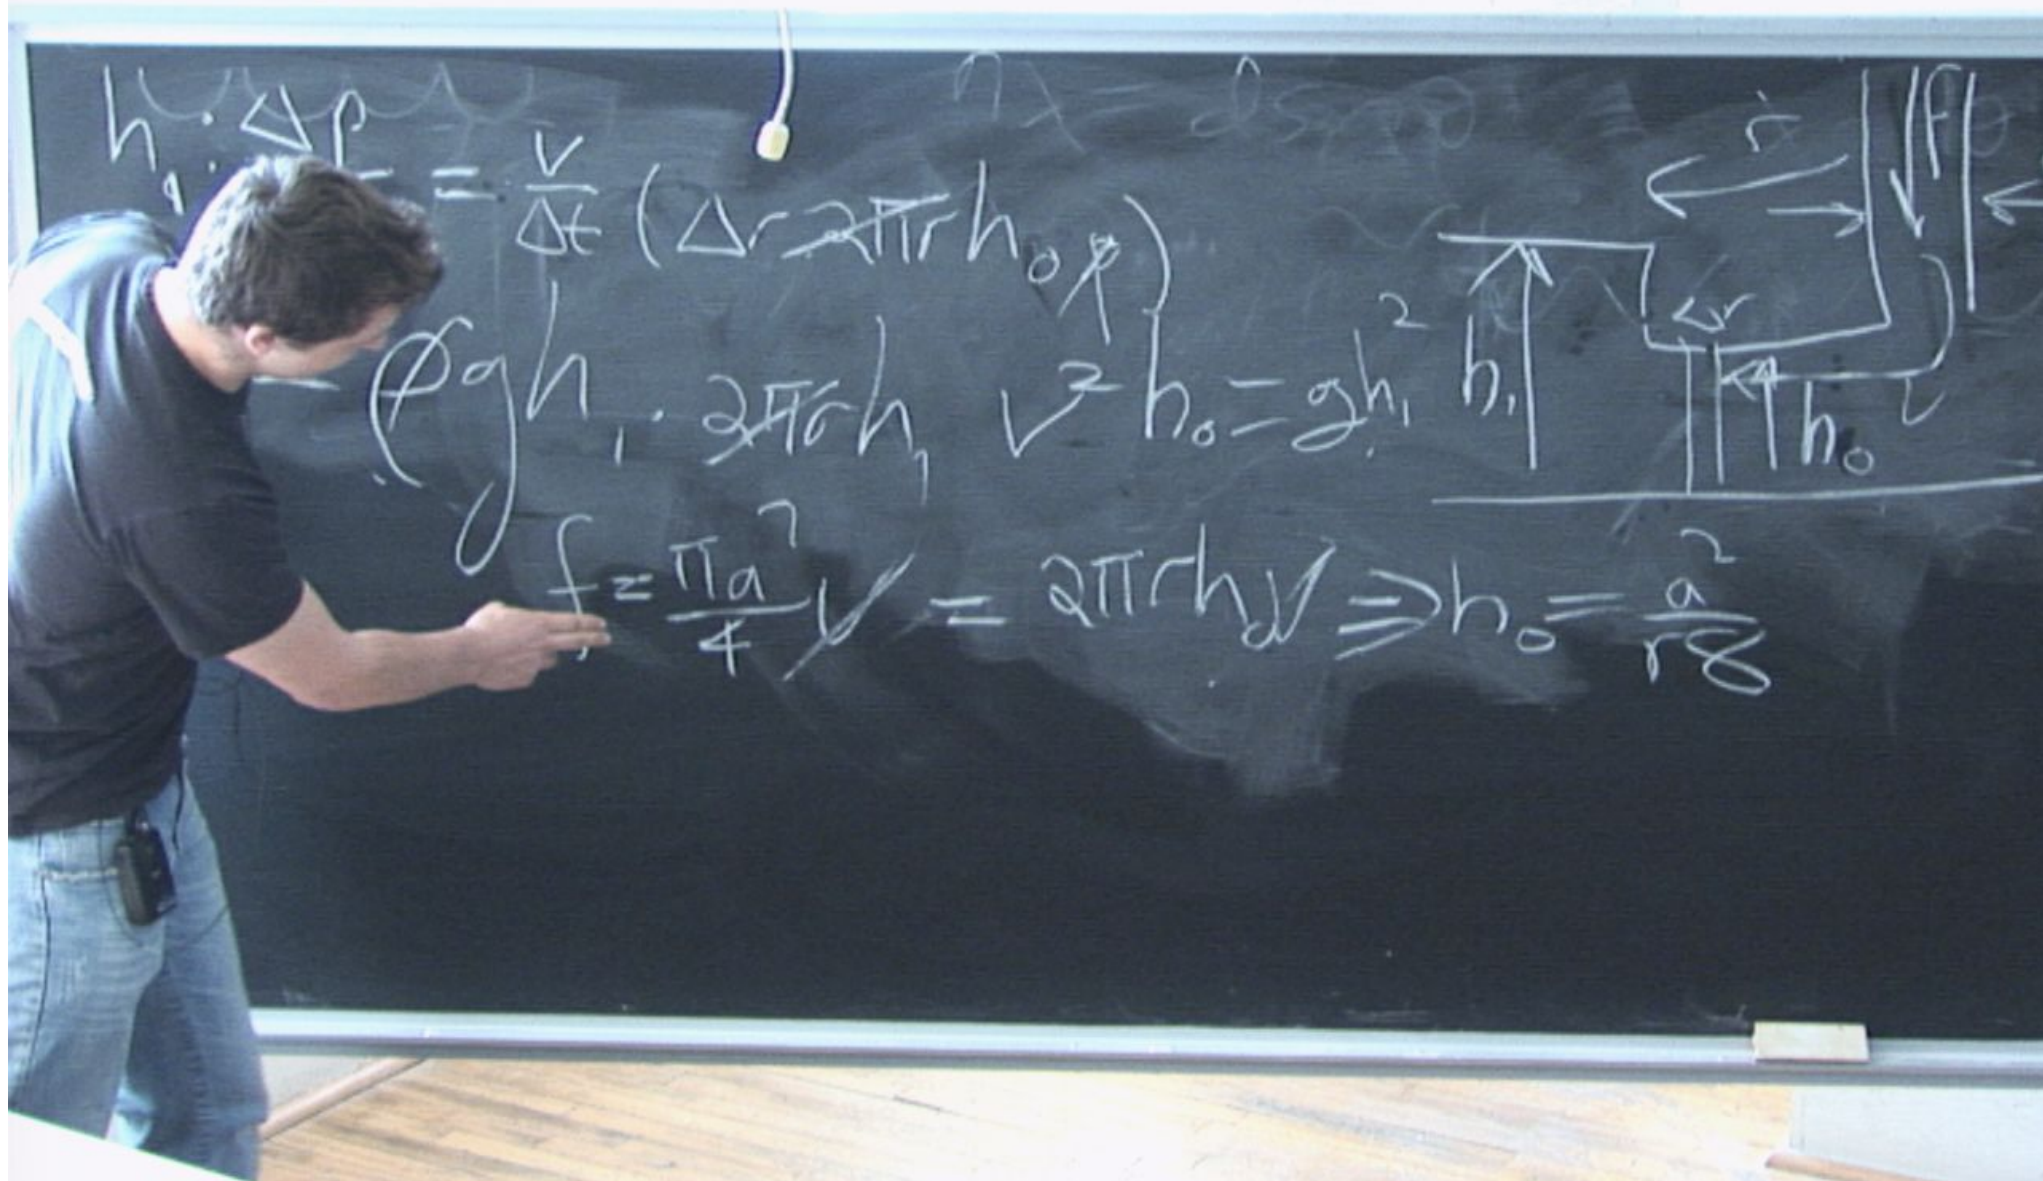 h₁ · Δp = v/Δt (Δr 2πr h₀ ρ)
= ρgh₁ · 2πrh₁ v² h₀ = gh₁²
f = πa²/4 v = 2πrh₀v ⇒ h₀ = a²/r8
r
f
Δr
h₁
h₀